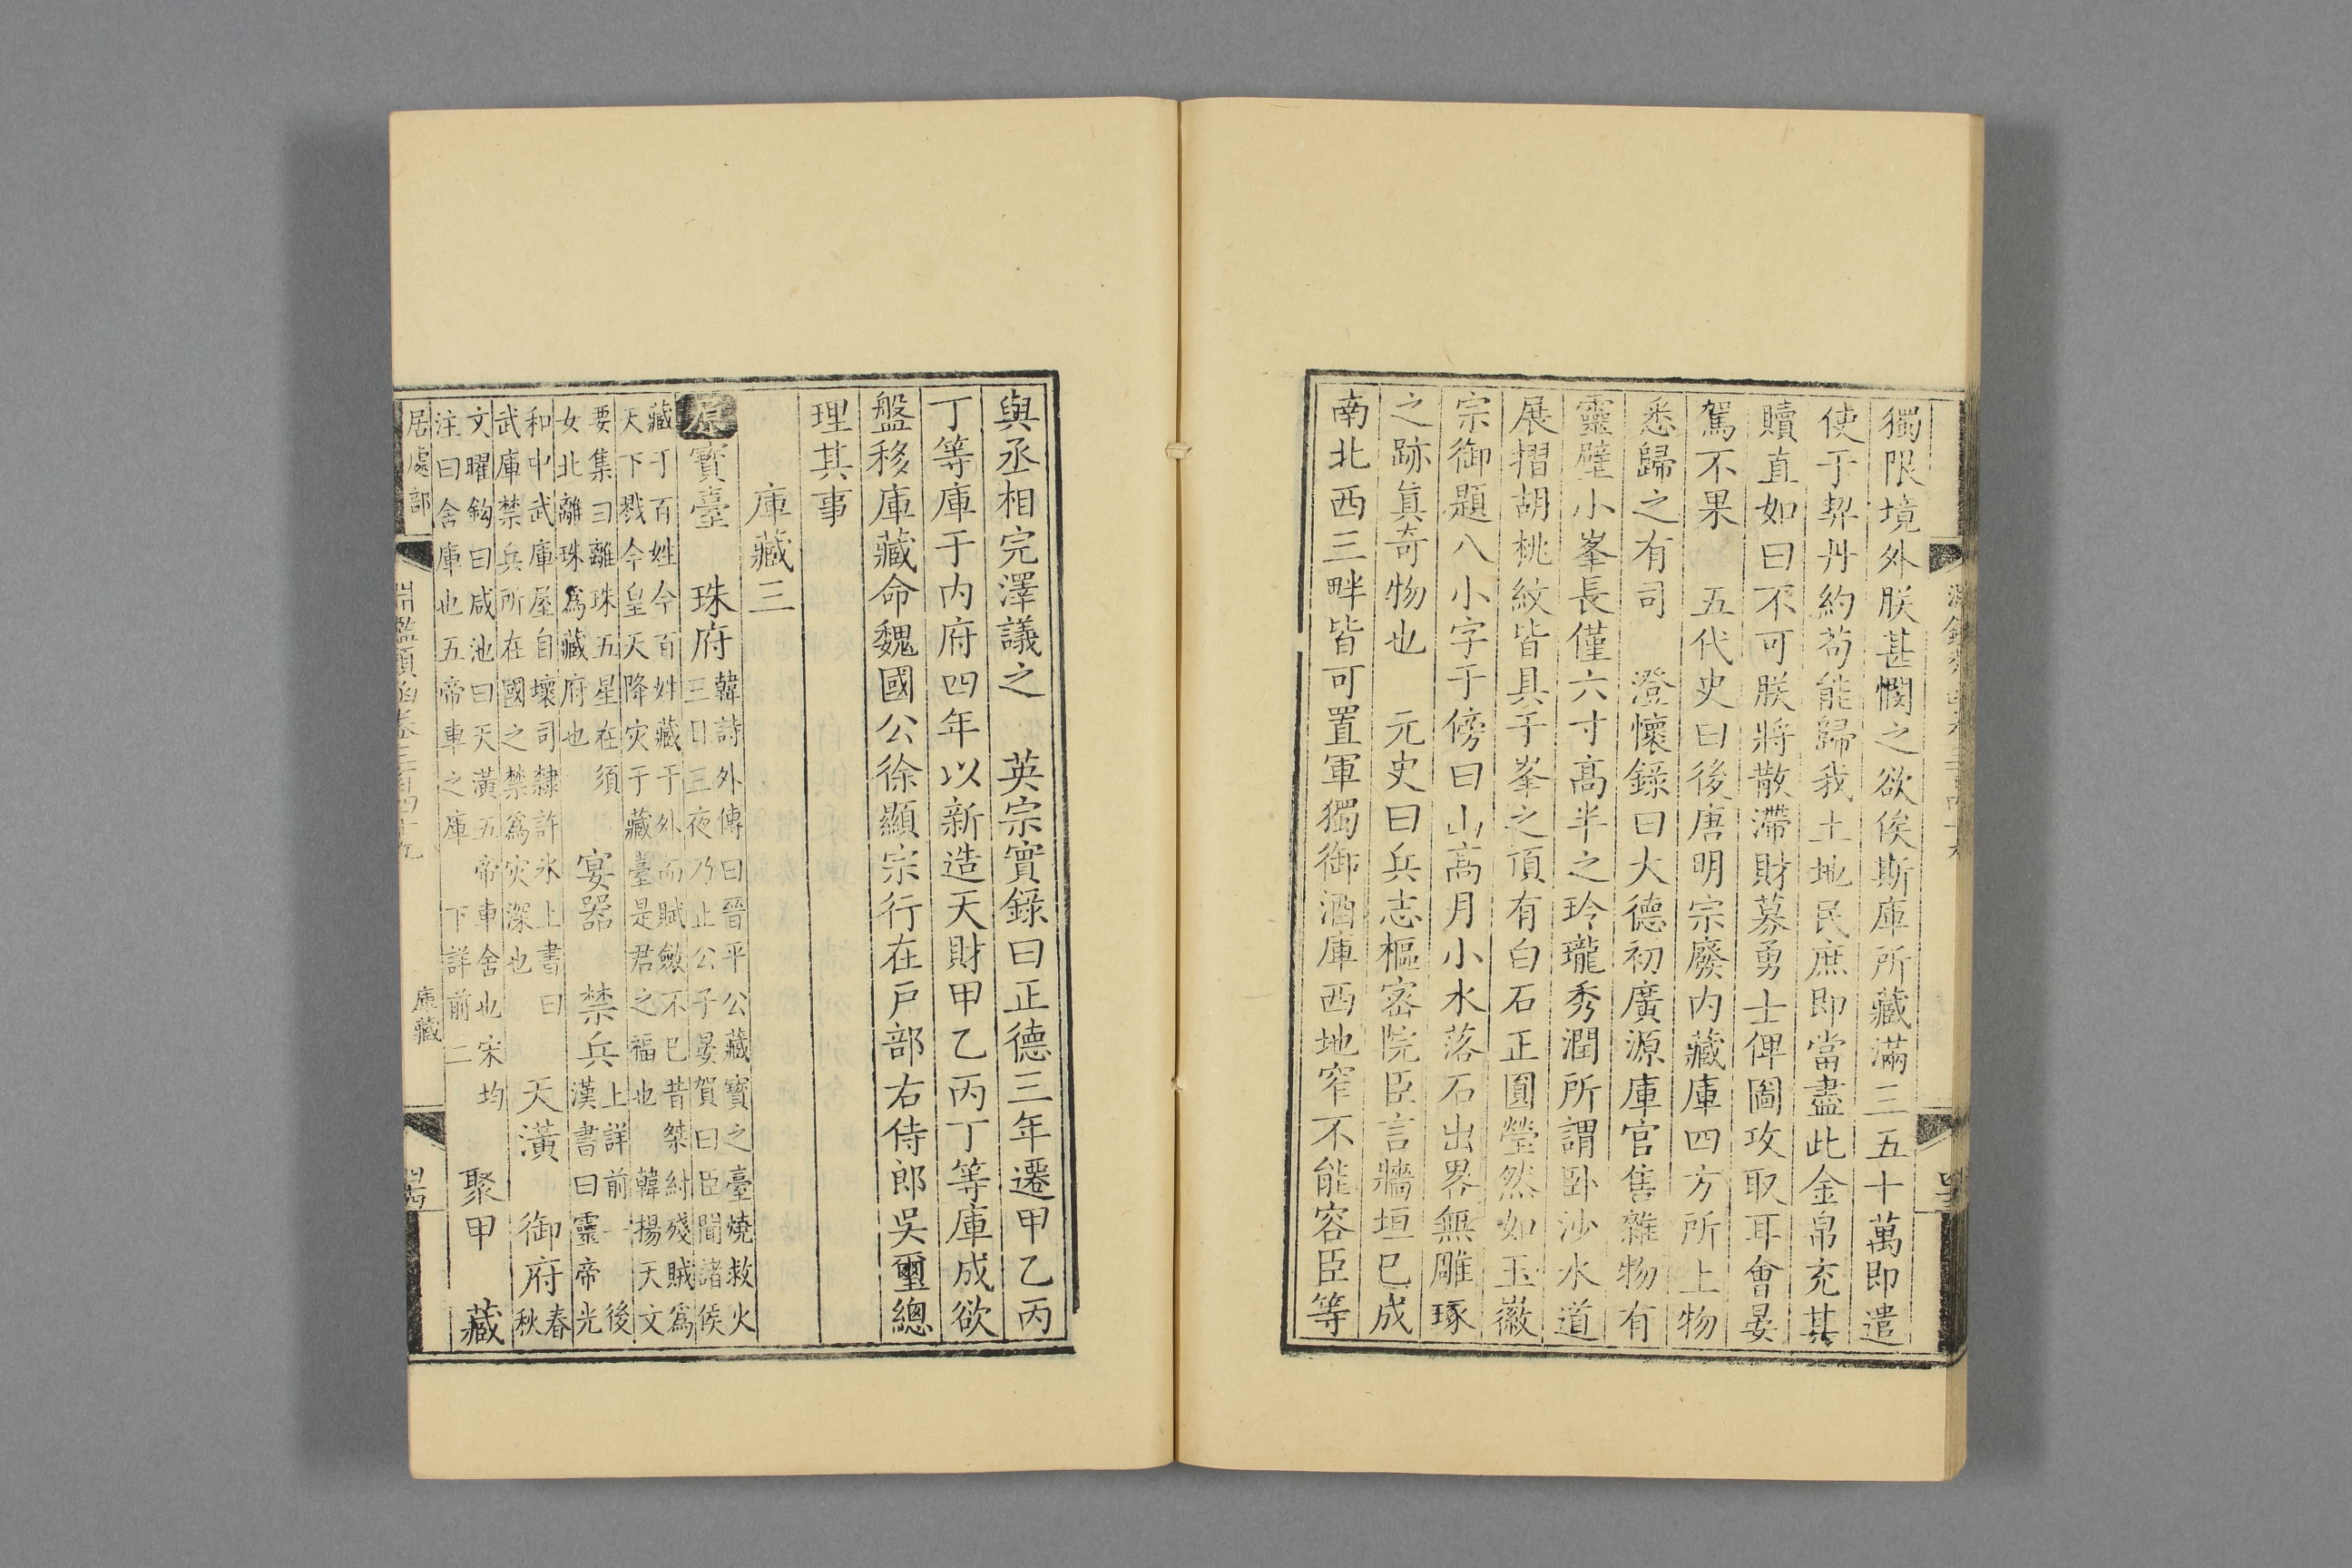 獨限境外朕甚憫之欲俟斯庫所藏滿三五十萬即遣
使于契丹約茍能歸我土地民庶即當盡此金帛充其
贖直如曰不可朕將散滯財募勇士俾圖攻取耳會晏
駕不果　五代史曰後唐明宗廢内藏庫四方所上物
悉歸之有司　澄懷錄曰大德初廣源庫官售雜物有
靈壁小峯長僅六寸高半之玲瓏秀潤所謂卧沙水道
展摺胡桃紋皆具于峯之頂有白石正圓瑩然如玉徽
宗御題八小字于傍曰山高月小水落石出畧無雕琢
之跡眞奇物也　元史曰兵志樞密院臣言牆垣已成
南北西三畔皆可置軍獨御酒庫西地窄不能容臣等
與丞相完澤議之　英宗實錄曰正德三年遷甲乙丙
丁等庫于内府四年以新造天財甲乙丙丁等庫成欲
盤移庫藏命魏國公徐顯宗行在戶部右侍郎吳璽總
理其事
庫藏三
原寶臺　珠府韓詩外傳曰晉平公藏寶之臺燒救火
三日三夜乃止公子晏賀曰臣聞諸侯
藏于百姓今百姓藏于外而賦斂不已昔桀紂殘賊爲
天下戮今皇天降灾于藏臺是君之福也　韓揚天文
要集曰離珠五星在須
女北離珠爲藏府也　宴器　禁兵上詳前一　後
漢書曰靈帝光
和中武庫屋自壞司隸許氷上書曰
武庫禁兵所在國之禁爲灾深也　天潢　御府春
秋
文曜鈎曰咸池曰天潢五帝車舍也宋均
注曰舍庫也五帝車之庫　下詳前二　聚甲　藏
居處部　淵鑑類函卷三百四十九　庫藏